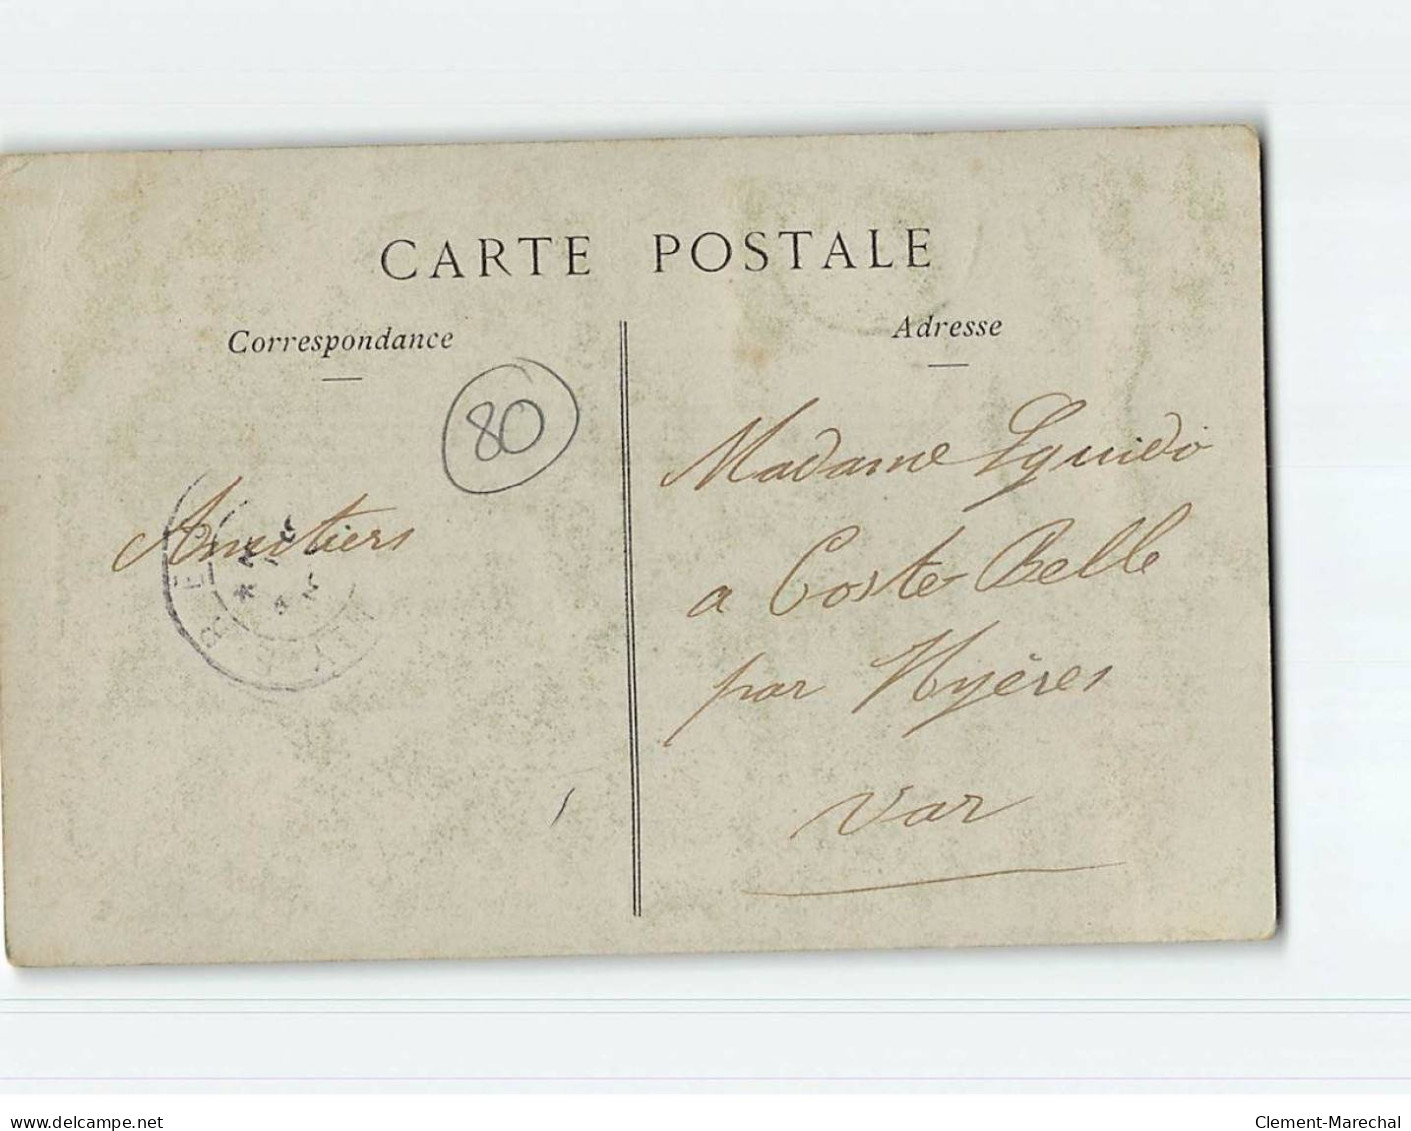 CARTE POSTALE
Correspondance
Adresse
80
Amitiers
Madame Eguido
a Coste Belle
par Hyères
Var
delcampe.net
Clement-Marechal